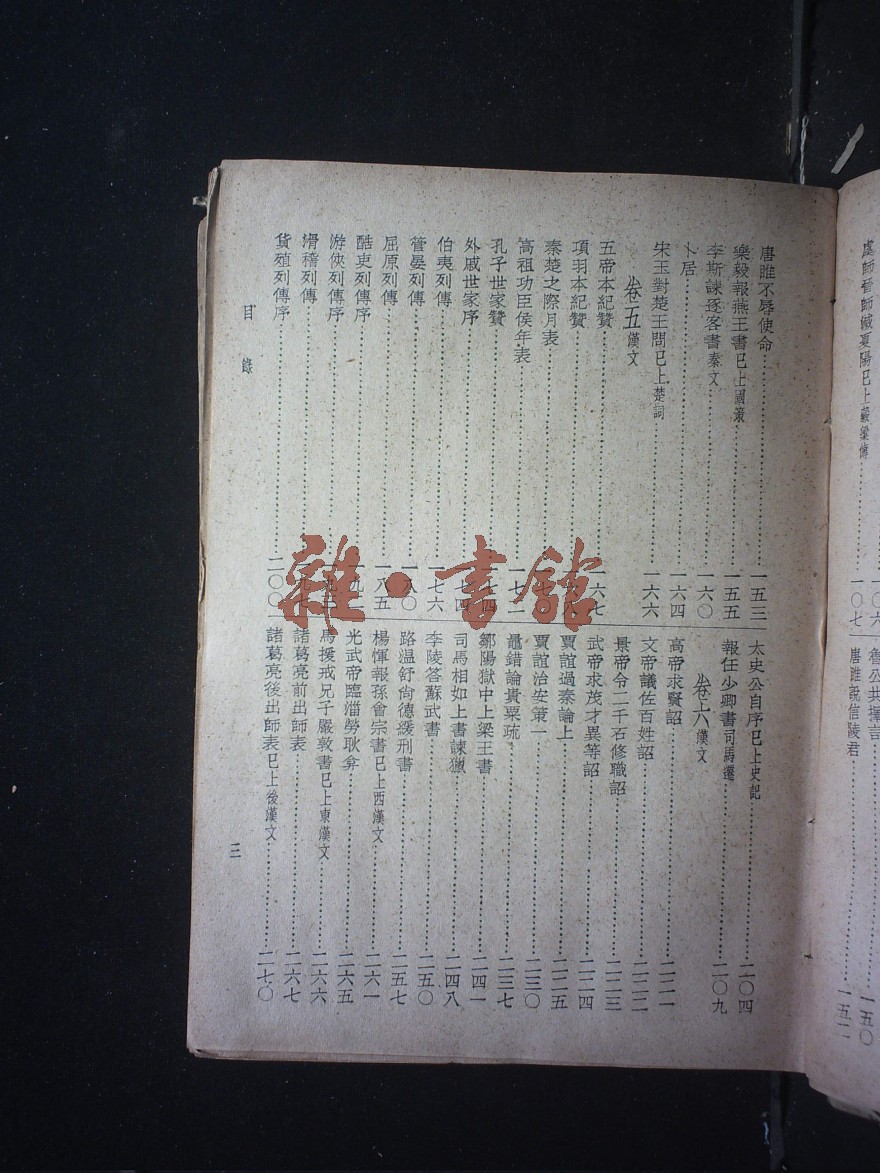 虞師晉師滅夏陽已上穀梁傳
一〇七
唐雎說信陵君
一五二
唐雎不辱使命
一五三
樂毅報燕王書已上國策
一五五
李斯諫逐客書秦文
一六〇
卜居
一六四
宋玉對楚王問已上楚詞
一六六
卷之五漢文
五帝本紀贊
項羽本紀贊
秦楚之際月表
高祖功臣侯年表
孔子世家贊
外戚世家序
伯夷列傳
一七六
管晏列傳
一八〇
屈原列傳
一八五
酷吏列傳序
游俠列傳序
滑稽列傳
貨殖列傳序
二〇〇
太史公自序已上史記
二〇四
報任少卿書司馬遷
二〇九
卷之六漢文
高帝求賢詔
二二一
文帝議佐百姓詔
二二二
景帝令二千石修職詔
二二三
武帝求茂才異等詔
二二四
賈誼過秦論上
二二五
賈誼治安策一
二三〇
鼂錯論貴粟疏
二三七
鄒陽獄中上梁王書
二四一
司馬相如上書諫獵
二四八
李陵答蘇武書
二五〇
路溫舒尚德緩刑書
二五七
楊惲報孫會宗書已上西漢文
二六一
光武帝臨淄勞耿弇
二六五
馬援戒兄子嚴敦書已上東漢文
二六六
諸葛亮前出師表
二六七
諸葛亮後出師表已上後漢文
二七〇
目錄
三
雜·書館